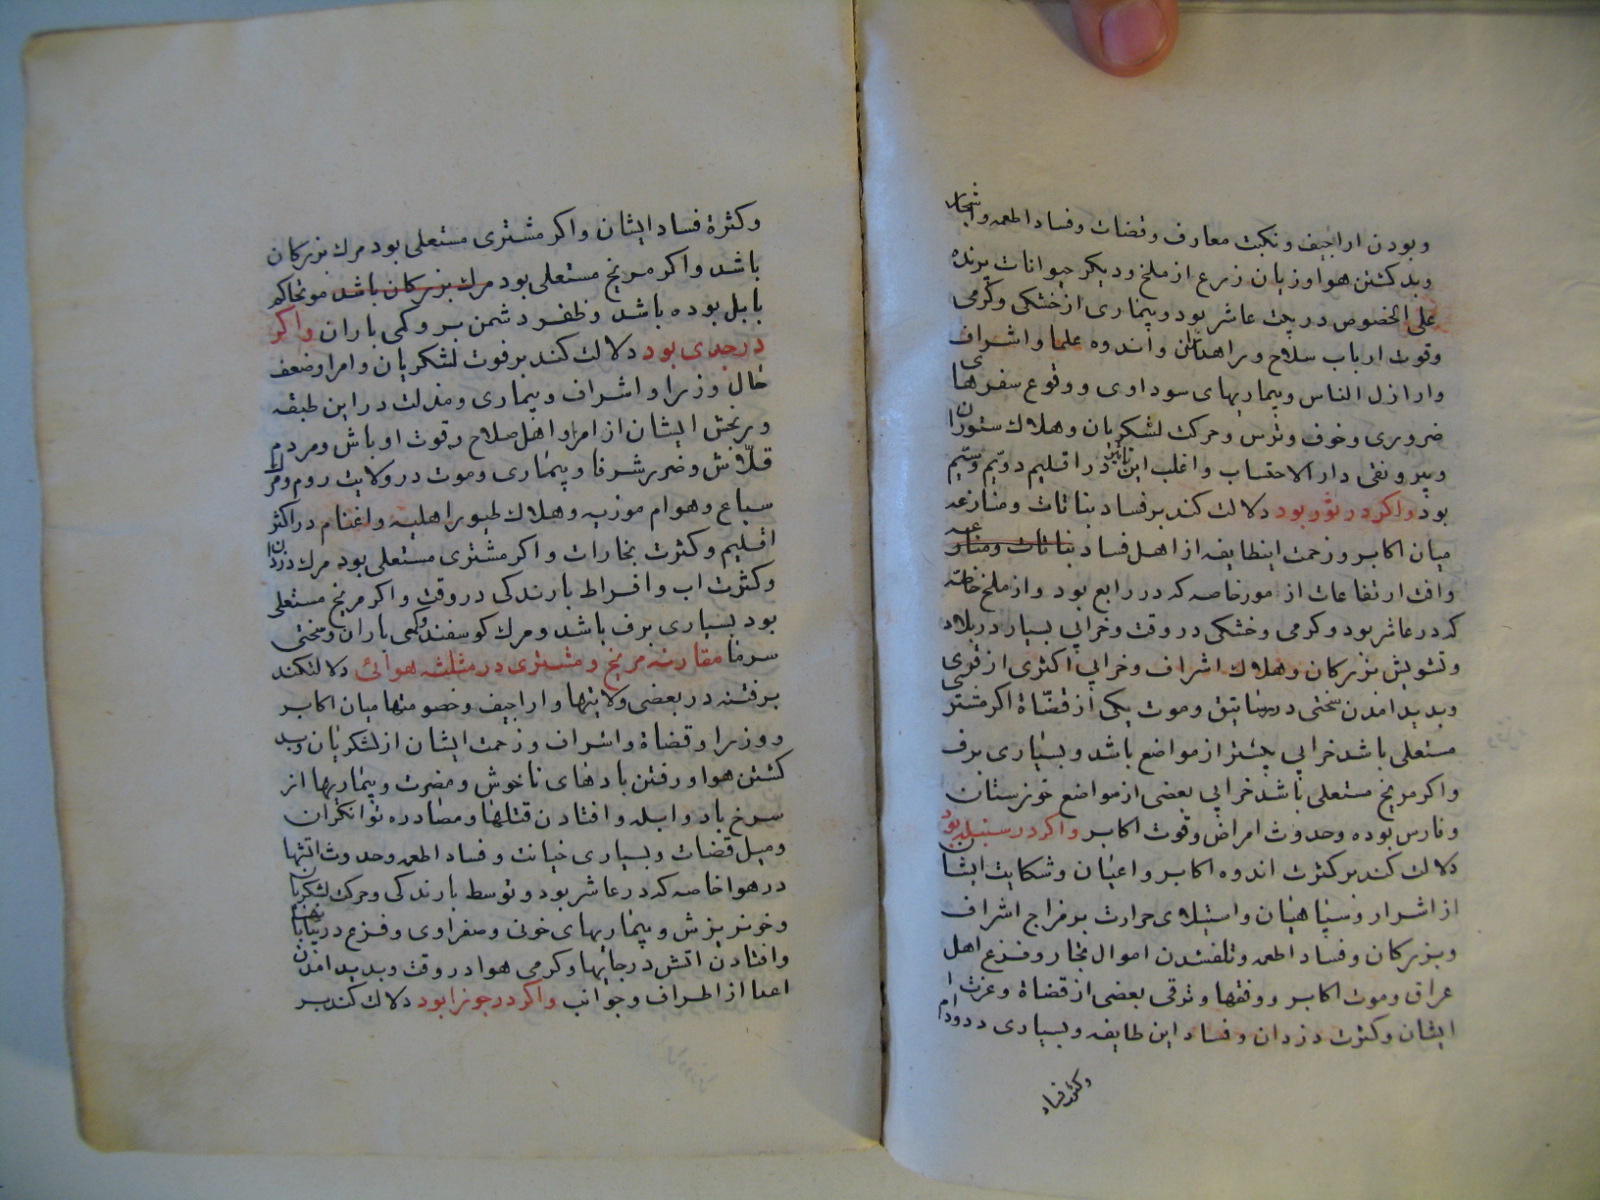 وبودن اراجیف ونکبت معارف وقضات وفساد اطعمه واشجار
وبد کشتن هوا وزیان زرع از ملخ ودیکر حیوانات پرنده
علی الخصوص در بیت عاشر بود وبیماری از خشکی وکرمی
وقوت ارباب سلاح وراهدانان واندوه علما واشراف
وارازل الناس وبیماریهای سوداوی ووقوع سفرهای
ضروری وخوف وترس وحرکت لشکریان وهلاک ستوران
وبیرونقی دار الاحتساب واغلب این تاثیر در اقلیم دویم وسیم
بود واکر در ثور بود دلالت کند بر فساد نباتات ومنازعه
میان اکابر وزحمت اینطایفه از اهل فساد نباتات ومنازعه
وافت ارتفاعات از مور خاصه که در رابع بود واز ملخ خاصّه
که در عاشر بود وکرمی وخشکی در وقت وخرابی بسیار در بلاد
وتشویش بزرکان وهلاک اشراف وخرابی اکثری از قوی
وبدید امدن سختی در رساتیق وموت یکی از قضّاة اکر مشتری
مستعلی باشد خرابی بیشتر از مواضع باشد وبسیاری برف
واکر مریخ مستعلی باشد خرابی بعضی از مواضع خوزستان
وفارس بوده وحدوث امراض وقوت اکابر واکر در سنبله بود
دلالت کند بر کثرت اندوه اکابر واعیان وشکایت ایشان
از اشرار وسپاهیان واستیلای حرارت بر مزاج اشراف
وبزرکان وفساد اطعمه وتلفشدن اموال تجار وفزع اهل
عراق وموت اکابر ووفقها وترقی بعضی از قضاة وعزت
ایشان وکثرت دزدان وفساد این طایفه وبسیاری دد ودام
وکثرة فساد
وکثرة فساد ایشان واکر مشتری مستعلی بود مرک بزرکان
باشد واکر مریخ مستعلی بود مرک بزرکان باشد موت حاکم
بابل بوده باشد وظفر دشمن بر وکمی باران واکر
در جدی بود دلالت کند بر قوت لشکریان وامرا وضعف
حال وزرا واشراف وبیماری ومذلت در این طبقه
ورنجش ایشان از امرا واهل صلاح وقوت اوباش ومردم
قلّاش وضرر شرفا وبیماری وموت در ولایت روم ومرک
سباع وهوام موزیه وهلاک طیور اهلیه واغنام در اکثر
اقلیم وکثرت بخارات واکر مشتری مستعلی بود مرک دزدان
وکثرت اب وافراط بارندکی در وقت واکر مریخ مستعلی
بود بسیاری برف باشد ومرک کوسفند وکمی باران وسختی
سرما مقارنه مریخ ومشتری در مثلثه هوائی دلالت کند
بر فتنه در بعضی ولایتها واراجیف وخصومتها میان اکابر
ووزرا وقضاة واشراف وزحمت ایشان از لشکریان وبد
کشتن هوا ورفتن بادهای ناخوش ومضرت وبیماریها از
سرخ باد وابله وافتادن قتلها ومصادره توانکران
ومیل قضات وبسیاری خیانت وفساد اطعمه وحدوث اتشها
در هوا خاصه که در عاشر بود وتوسط بارندکی وحرکت لشکریان
وخونریزش وبیماریهای خونی وصفراوی وفزع در بیابانها
وافتادن اتش در جایها وکرمی هوا در وقت وبدید امدن
اعدا از اطراف وجوانب واکر در جوزا بود دلالت کند بر